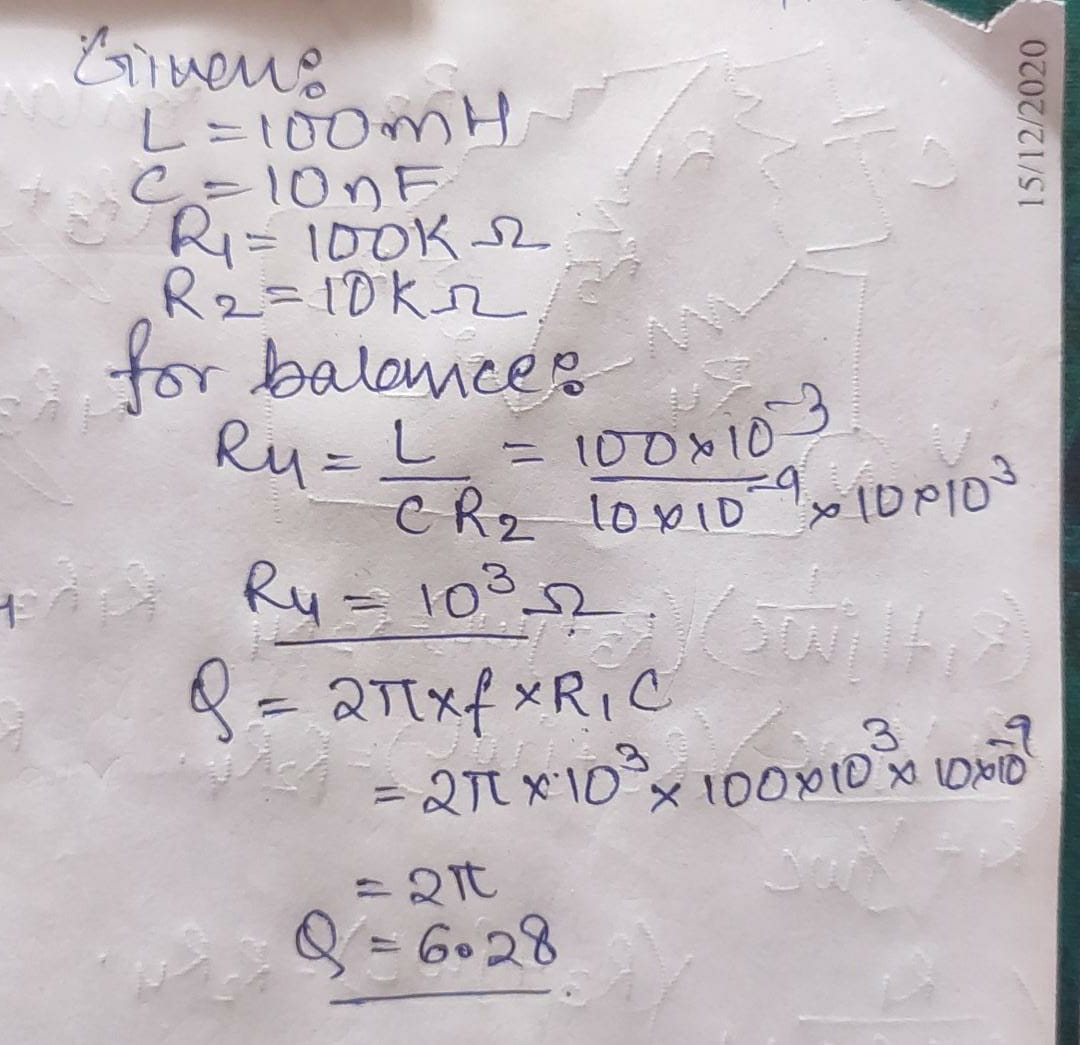 Given:
L = 100mH
C = 10nF
R1 = 100K Ω
R2 = 10KΩ
for balance:
R4 = L / C R2 = 100×10^-3 / 10×10^-9 × 10×10^3
R4 = 10^3 Ω.
Q = 2π×f×R1C
= 2π×10^3 × 100×10^3 × 10×10^-9
= 2π
Q = 6.28.
15/12/2020